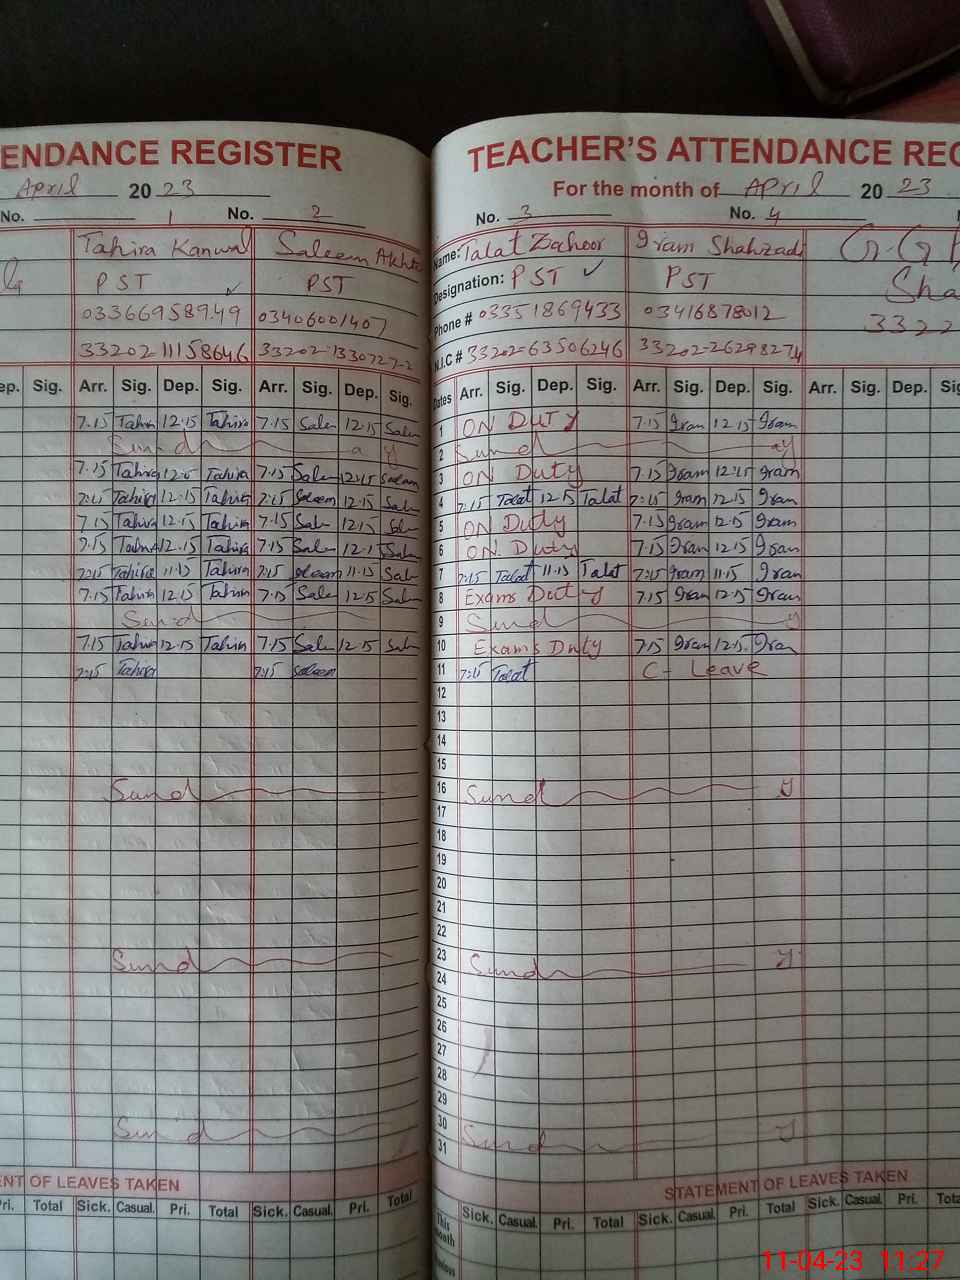 ENDANCE REGISTER
April 20 23
No. 1 No. 2
Tahira Kanwal Saleem Akhta
PST PST
03366958949 03406001407
33202-1115864-6 33202-1330727-2
ep. Sig. Arr. Sig. Dep. Sig. Arr. Sig. Dep. Sig.
7.15 Tahira 12.15 Tahira 7.15 Salem 12.15 Salem
Sund a y
7.15 Tahira 12.15 Tahira 7.15 Salem 12:15 Saleem
7:15 Tahira 12.15 Tahira 7:15 Saleem 12.15 Salem
7.15 Tahira 12.15 Tahira 7.15 Salem 12.15 Salem
7.15 Tahira 12.15 Tahira 7.15 Salem 12.15 Salem
7:15 Tahira 11.15 Tahira 7:15 Saleem 11.15 Salem
7.15 Tahira 12.15 Tahira 7.15 Salem 12.15 Salem
Sund
7.15 Tahira 12.15 Tahira 7.15 Salem 12.15 Salem
7:15 Tahira 7:15 Saleem
Sund
Sund
Sund
ENT OF LEAVES TAKEN
Pri. Total Sick. Casual. Pri. Total Sick. Casual. Pri. Total
TEACHER'S ATTENDANCE REG
For the month of April 20 23
No. 3 No. 4
Name: Talat Zahoor Iram Shahzadi G.G
Designation: PST ✓ PST Sha
Phone # 03351869433 03416878012 3322
N.I.C # 33202-6350624-6 33202-2629827-4
Dates Arr. Sig. Dep. Sig. Arr. Sig. Dep. Sig. Arr. Sig. Dep. Sig.
1 ON DUTY 7.15 Iram 12.15 Iram
2 Sund ay
3 ON Duty 7.15 Iram 12:15 Iram
4 7:15 Talat 12.15 Talat 7:15 Iram 12.15 Iram
5 ON Duty 7.15 Iram 12.15 Iram
6 ON Duty 7.15 Iram 12.15 Iram
7 7:15 Talat 11.15 Talat 7:15 Iram 11.15 Iram
8 Exams Duty 7.15 Iram 12.15 Iram
9 Sund y
10 Exams Duty 7.15 Iram 12.15 Iram
11 7:15 Talat C- Leave
12
13
14
15
16 Sund y
17
18
19
20
21
22
23 Sund y
24
25
26
27
28
29
30 Sund y
31
STATEMENT OF LEAVES TAKEN
This Month Sick. Casual. Pri. Total Sick. Casual. Pri. Total Sick. Casual. Pri. Tota
11-04-23 11:27